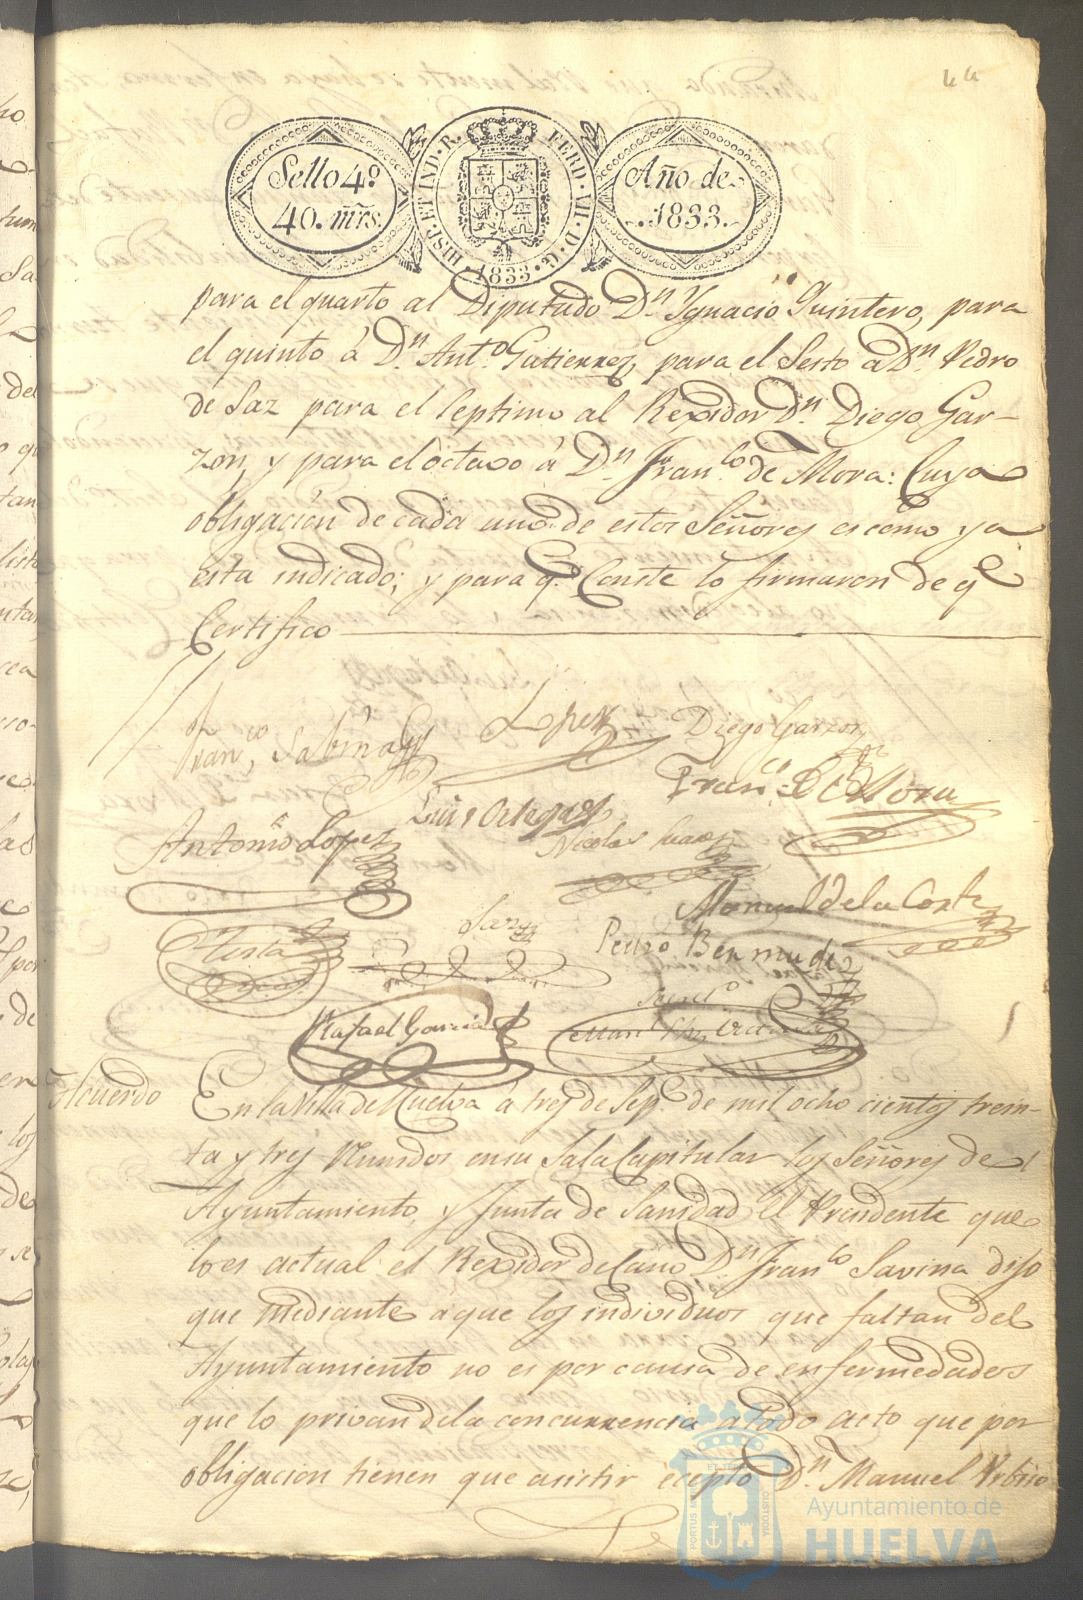 44
Sello 4º
40. mrs.
HISP. ET IND. R. FERD. VII. D. G.
1833
Año de
1833.
para el quarto al Diputado Dn Ygnacio Quintero, para
el quinto á Dn. Anto. Gutierrez, para el Sesto á Dn Pedro
de Saz para el Septimo al Rexidor Dn. Diego Gar-
zon, y para el octavo á Dn. Franco de Mora: Cuya
obligacion de cada uno de estos Señores es como ya
esta indicado; y para qe. Conste lo firmaron de qe
Certifico
Franco, Sabina
Lopez
Diego Garzon
Luis Ortega
Franco. De Mora
Antonio Lopez
Nicolas Suarez
Manuel de la Corte
Saz
Pedro Bermudez
Testa
Rafael Garcia
Acuerdo
En la Villa de Huelva á tres de Sepe. de mil ocho cientos trein-
ta y tres Reunidos en su Sala Capitular los Señores del
Ayuntamiento, y Junta de Sanidad el Presidente que
lo es actual el Rexidor Decano Dn Franco Savina dijo
que mediante á que los individuos que faltan del
Ayuntamiento no es por causa de enfermedades
que lo privan de la concurrencia a todo acto que por
obligacion tienen que asistir ecepto Dn. Manuel
PORTUS MARIS ET TERRAE CUSTODIA
Ayuntamiento de
HUELVA